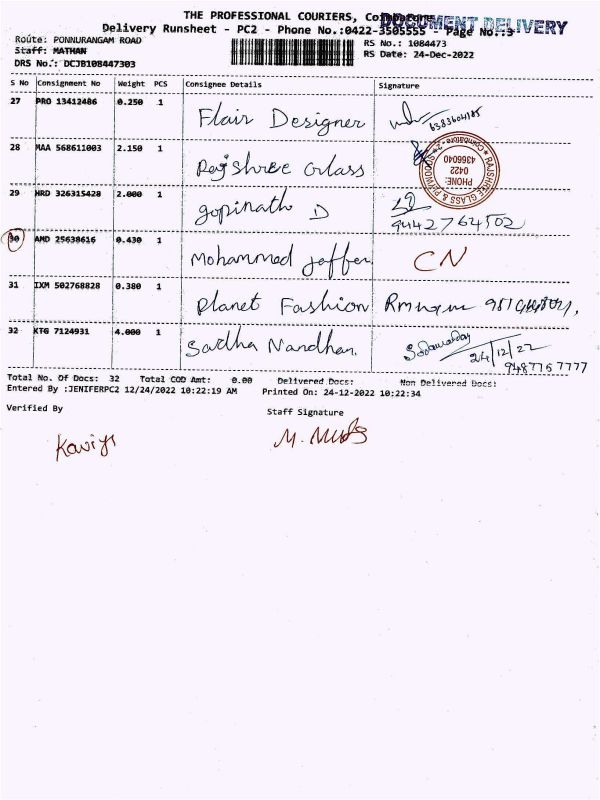 THE PROFESSIONAL COURIERS, Coimbatore
DOCUMENT DELIVERY
Delivery Runsheet - PC2 - Phone No.:0422-3505555 - Page No.:3
Route: PONNURANGAM ROAD RS No.: 1084473
Staff: MATHAN RS Date: 24-Dec-2022
DRS No.: DCJB108447303
S No Consignment No Weight PCS Consignee Details Signature
27 PRO 13412486 0.250 1 Flair Designer 6383604185
28 MAA 568611003 2.150 1 Rajshree Glass
RAJSHREE GLASS & PLYWOODS Coimbatore - 2
PHONE: 0422 4366040
29 HRD 326315428 2.000 1 gopinath D 9442764502
30 AMD 25638616 0.430 1 Mohammed Jaffer CN
31 IXM 502768828 0.380 1 Planet Fashion
32 KTG 7124931 4.000 1 Sadha Nandhan 24/12/22
9487767777
Total No. Of Docs: 32 Total COD Amt: 0.00 Delivered Docs: Non Delivered Docs:
Entered By :JENIFERPC2 12/24/2022 10:22:19 AM Printed On: 24-12-2022 10:22:34
Verified By Staff Signature
Kaviya